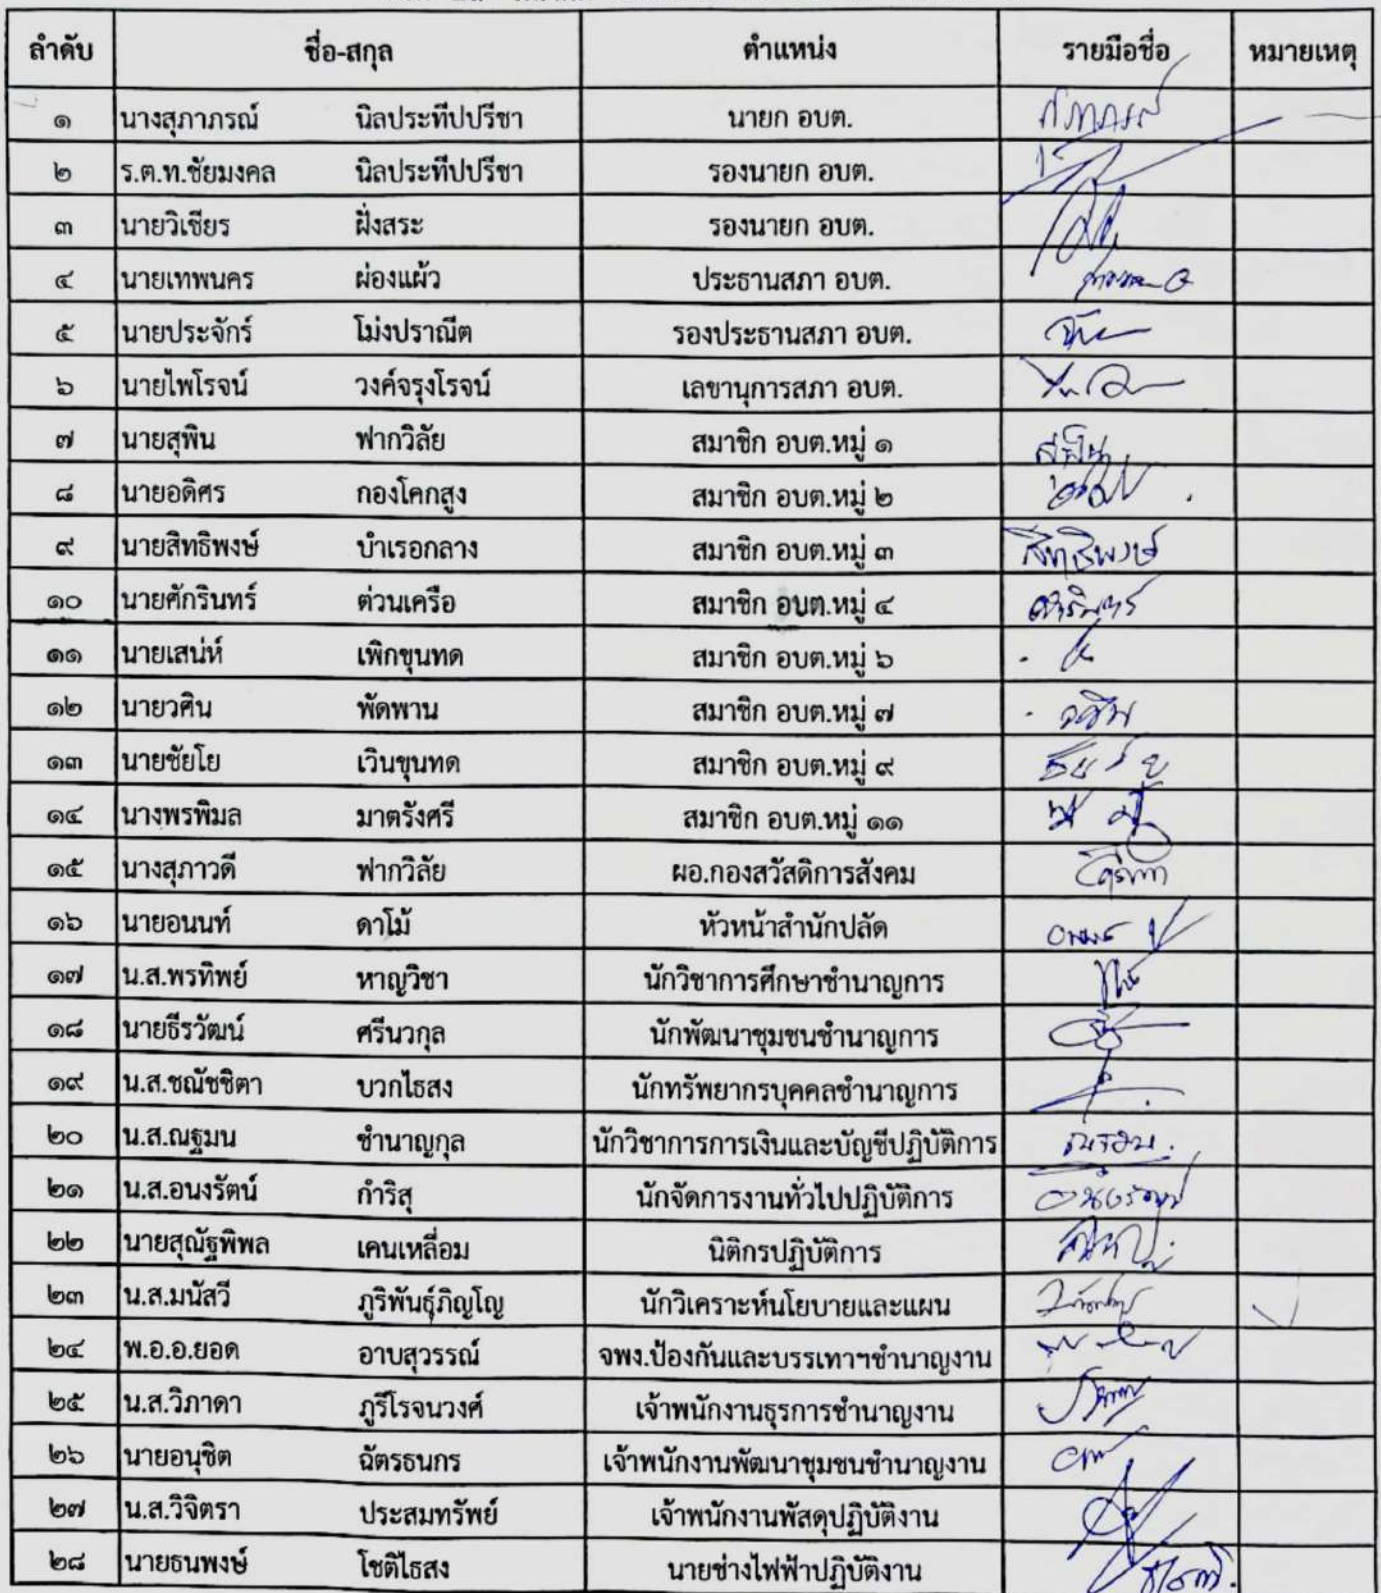 ลำดับ ชื่อ-สกุล ตำแหน่ง รายมือชื่อ หมายเหตุ
๑ นางสุภาภรณ์ นิลประทีปปรีชา นายก อบต.
๒ ร.ต.ท.ชัยมงคล นิลประทีปปรีชา รองนายก อบต.
๓ นายวิเชียร ฝั่งสระ รองนายก อบต.
๔ นายเทพนคร ผ่องแผ้ว ประธานสภา อบต.
๕ นายประจักร์ โม่งปราณีต รองประธานสภา อบต.
๖ นายไพโรจน์ วงค์จรุงโรจน์ เลขานุการสภา อบต.
๗ นายสุพิน ฟากวิลัย สมาชิก อบต.หมู่ ๑ สุพิน
๘ นายอดิศร กองโคกสูง สมาชิก อบต.หมู่ ๒
๙ นายสิทธิพงษ์ บำเรอกลาง สมาชิก อบต.หมู่ ๓ สิทธิพงษ์
๑๐ นายศักรินทร์ ต่วนเครือ สมาชิก อบต.หมู่ ๔ ศักรินทร์
๑๑ นายเสน่ห์ เพิกขุนทด สมาชิก อบต.หมู่ ๖
๑๒ นายวศิน พัดพาน สมาชิก อบต.หมู่ ๗ วศิน
๑๓ นายชัยโย เวินขุนทด สมาชิก อบต.หมู่ ๙
๑๔ นางพรพิมล มาตรังศรี สมาชิก อบต.หมู่ ๑๑
๑๕ นางสุภาวดี ฟากวิลัย ผอ.กองสวัสดิการสังคม
๑๖ นายอนนท์ ดาโม้ หัวหน้าสำนักปลัด
๑๗ น.ส.พรทิพย์ หาญวิชา นักวิชาการศึกษาชำนาญการ
๑๘ นายธีรวัฒน์ ศรีนวกุล นักพัฒนาชุมชนชำนาญการ
๑๙ น.ส.ชณัชชิตา บวกไธสง นักทรัพยากรบุคคลชำนาญการ
๒๐ น.ส.ณฐมน ชำนาญกุล นักวิชาการการเงินและบัญชีปฏิบัติการ
๒๑ น.ส.อนงรัตน์ กำริสุ นักจัดการงานทั่วไปปฏิบัติการ
๒๒ นายสุณัฐพิพล เคนเหลื่อม นิติกรปฏิบัติการ
๒๓ น.ส.มนัสวี ภูริพันธุ์ภิญโญ นักวิเคราะห์นโยบายและแผน
๒๔ พ.อ.อ.ยอด อาบสุวรรณ์ จพง.ป้องกันและบรรเทาฯชำนาญงาน
๒๕ น.ส.วิภาดา ภูรีโรจนวงศ์ เจ้าพนักงานธุรการชำนาญงาน
๒๖ นายอนุชิต ฉัตรธนกร เจ้าพนักงานพัฒนาชุมชนชำนาญงาน
๒๗ น.ส.วิจิตรา ประสมทรัพย์ เจ้าพนักงานพัสดุปฏิบัติงาน
๒๘ นายธนพงษ์ โชติไธสง นายช่างไฟฟ้าปฏิบัติงาน